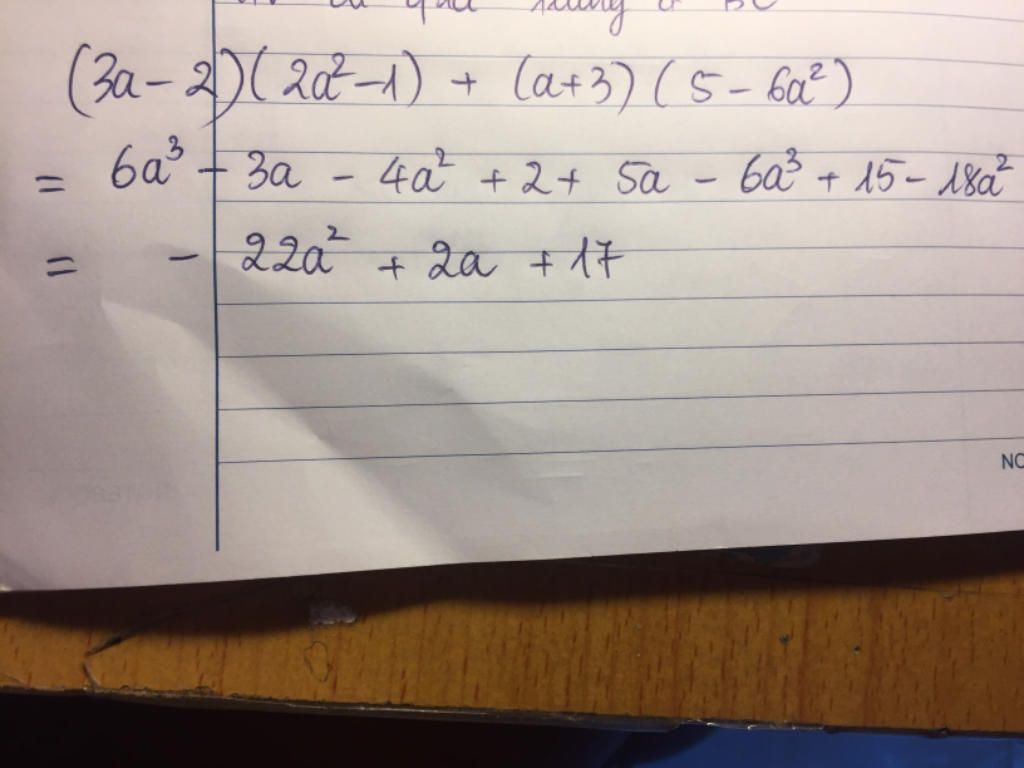 (3a - 2)(2a² - 1) + (a + 3)(5 - 6a²)
= 6a³ - 3a - 4a² + 2 + 5a - 6a³ + 15 - 18a²
= - 22a² + 2a + 17